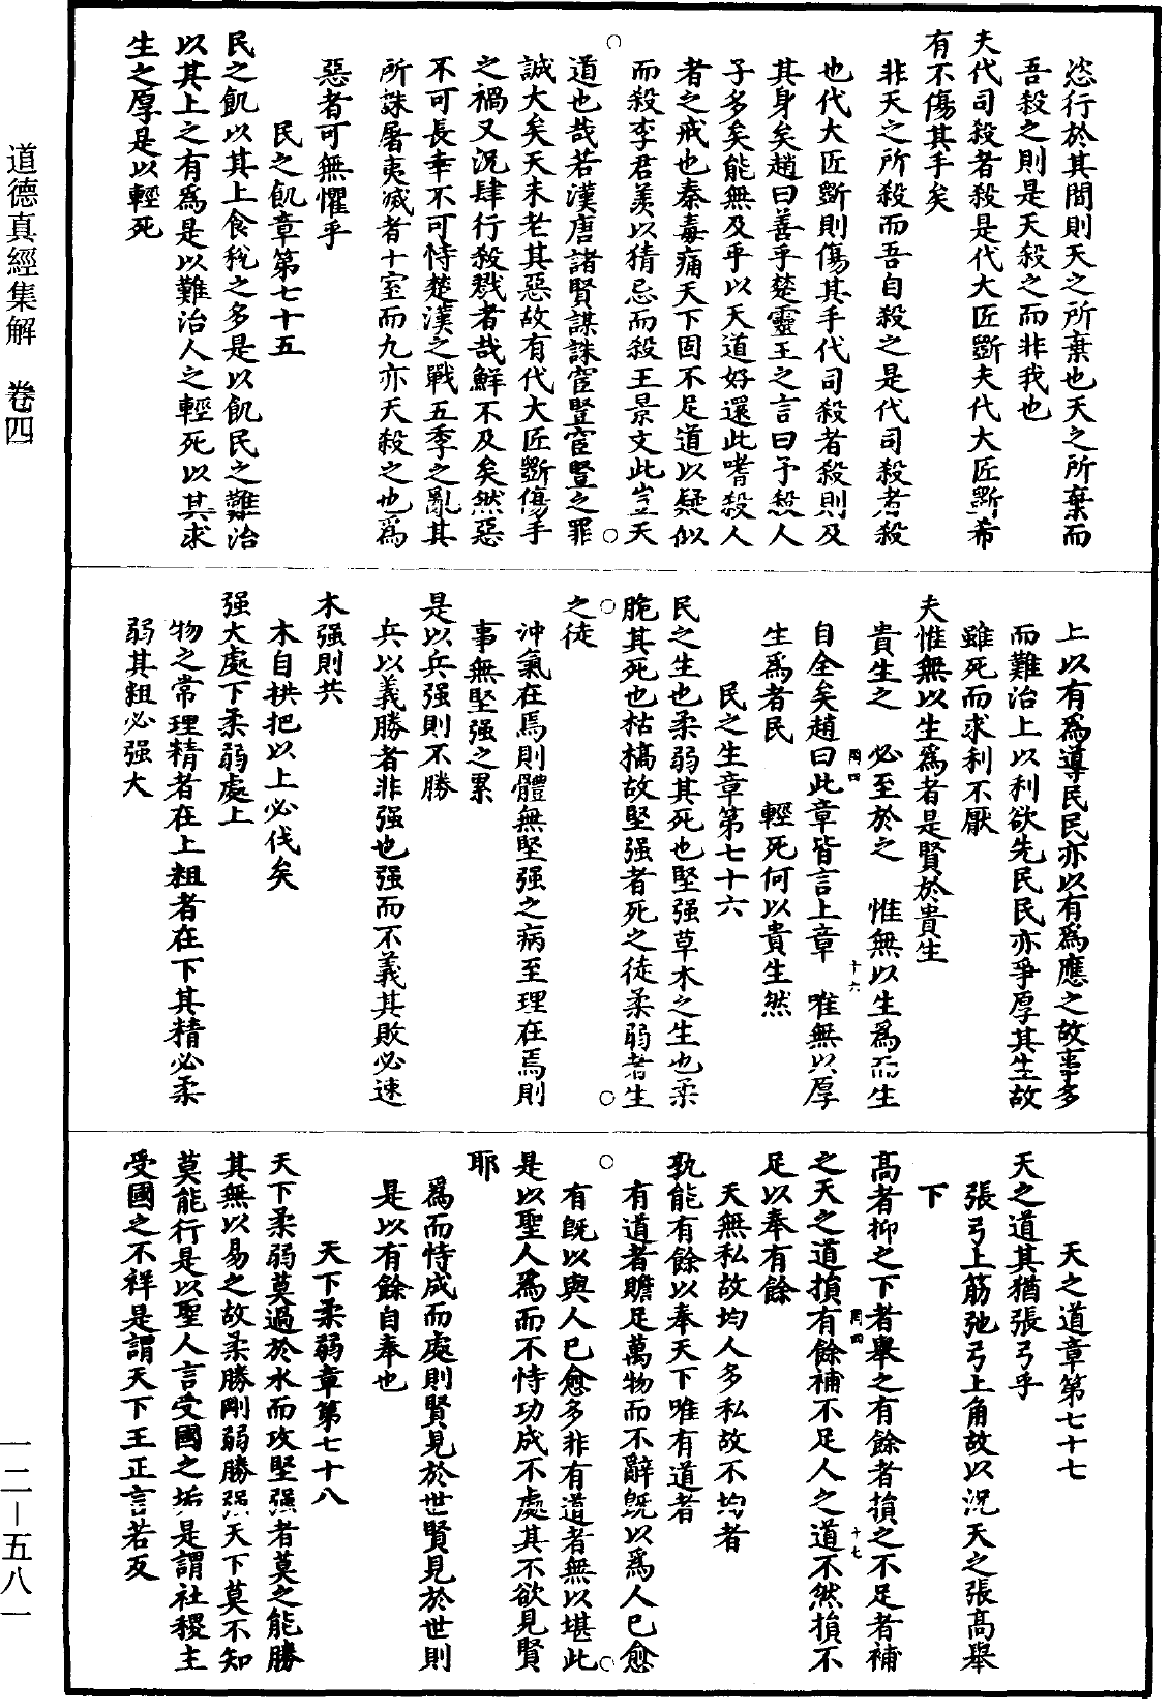 恣行於其間則天之所棄也天之所棄而
吾殺之則是天殺之而非我也
夫代司殺者殺是代大匠斲夫代大匠斲希
有不傷其手矣
非天之所殺而吾自殺之是代司殺者殺
也代大匠斲則傷其手代司殺者殺則及
其身矣趙曰善乎楚靈王之言曰予殺人
子多矣能無及乎以天道好還此嗜殺人
者之戒也秦毒痡天下固不足道以疑似
而殺李君羨以猜忌而殺王景文此豈天
道也哉若漢唐諸賢謀誅宦豎宦豎之罪
誠大矣天未老其惡故有代大匠斲傷手
之禍又況肆行殺戮者哉鮮不及矣然惡
不可長幸不可恃楚漢之戰五季之亂其
所誅屠夷滅者十室而九亦天殺之也爲
惡者可無懼乎
民之飢章第七十五
民之飢以其上食稅之多是以飢民之難治
以其上之有爲是以難治人之輕死以其求
生之厚是以輕死
上以有爲導民民亦以有爲應之故事多
而難治上以利欲先民民亦爭厚其生故
雖死而求利不厭
夫惟無以生爲者是賢於貴生
貴生之 必至於之 惟無以生爲而生
自全矣趙曰此章皆言上章 唯無以厚
生爲者民 輕死何以貴生然
民之生章第七十六
民之生也柔弱其死也堅强草木之生也柔
脆其死也枯槁故堅强者死之徒柔弱者生
之徒
沖氣在焉則體無堅强之病至理在焉則
事無堅强之累
是以兵强則不勝
兵以義勝者非强也强而不義其敗必速
木强則共
木自拱把以上必伐矣
强大處下柔弱處上
物之常理精者在上粗者在下其精必柔
弱其粗必强大
天之道章第七十七
天之道其猶張弓乎
張弓上筋弛弓上角故以況天之張高舉
下
高者抑之下者舉之有餘者損之不足者補
之天之道損有餘補不足人之道不然損不
足以奉有餘
天無私故均人多私故不均者
孰能有餘以奉天下唯有道者
有道者贍足萬物而不辭旣以爲人已愈
有旣以與人已愈多非有道者無以堪此
是以聖人爲而不恃功成不處其不欲見賢
耶
爲而恃成而處則賢見於世賢見於世則
是以有餘自奉也
天下柔弱章第七十八
天下柔弱莫過於水而攻堅强者莫之能勝
其無以易之故柔勝剛弱勝强天下莫不知
莫能行是以聖人言受國之垢是謂社稷主
受國之不祥是謂天下王正言若反
道德真經集解 卷四
一二－五八一